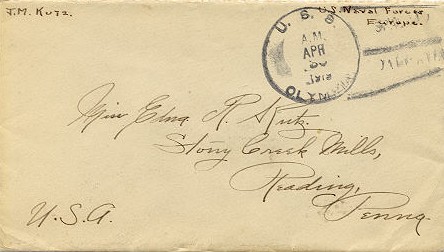 J.M. Kutz.
U.S. Naval Forces
Europe.
U. S. S.
A.M.
APR
30
OLYMPIA
Miss Edna R. Kutz.
Stony Creek Mills,
Reading,
Penna.
U.S.A.